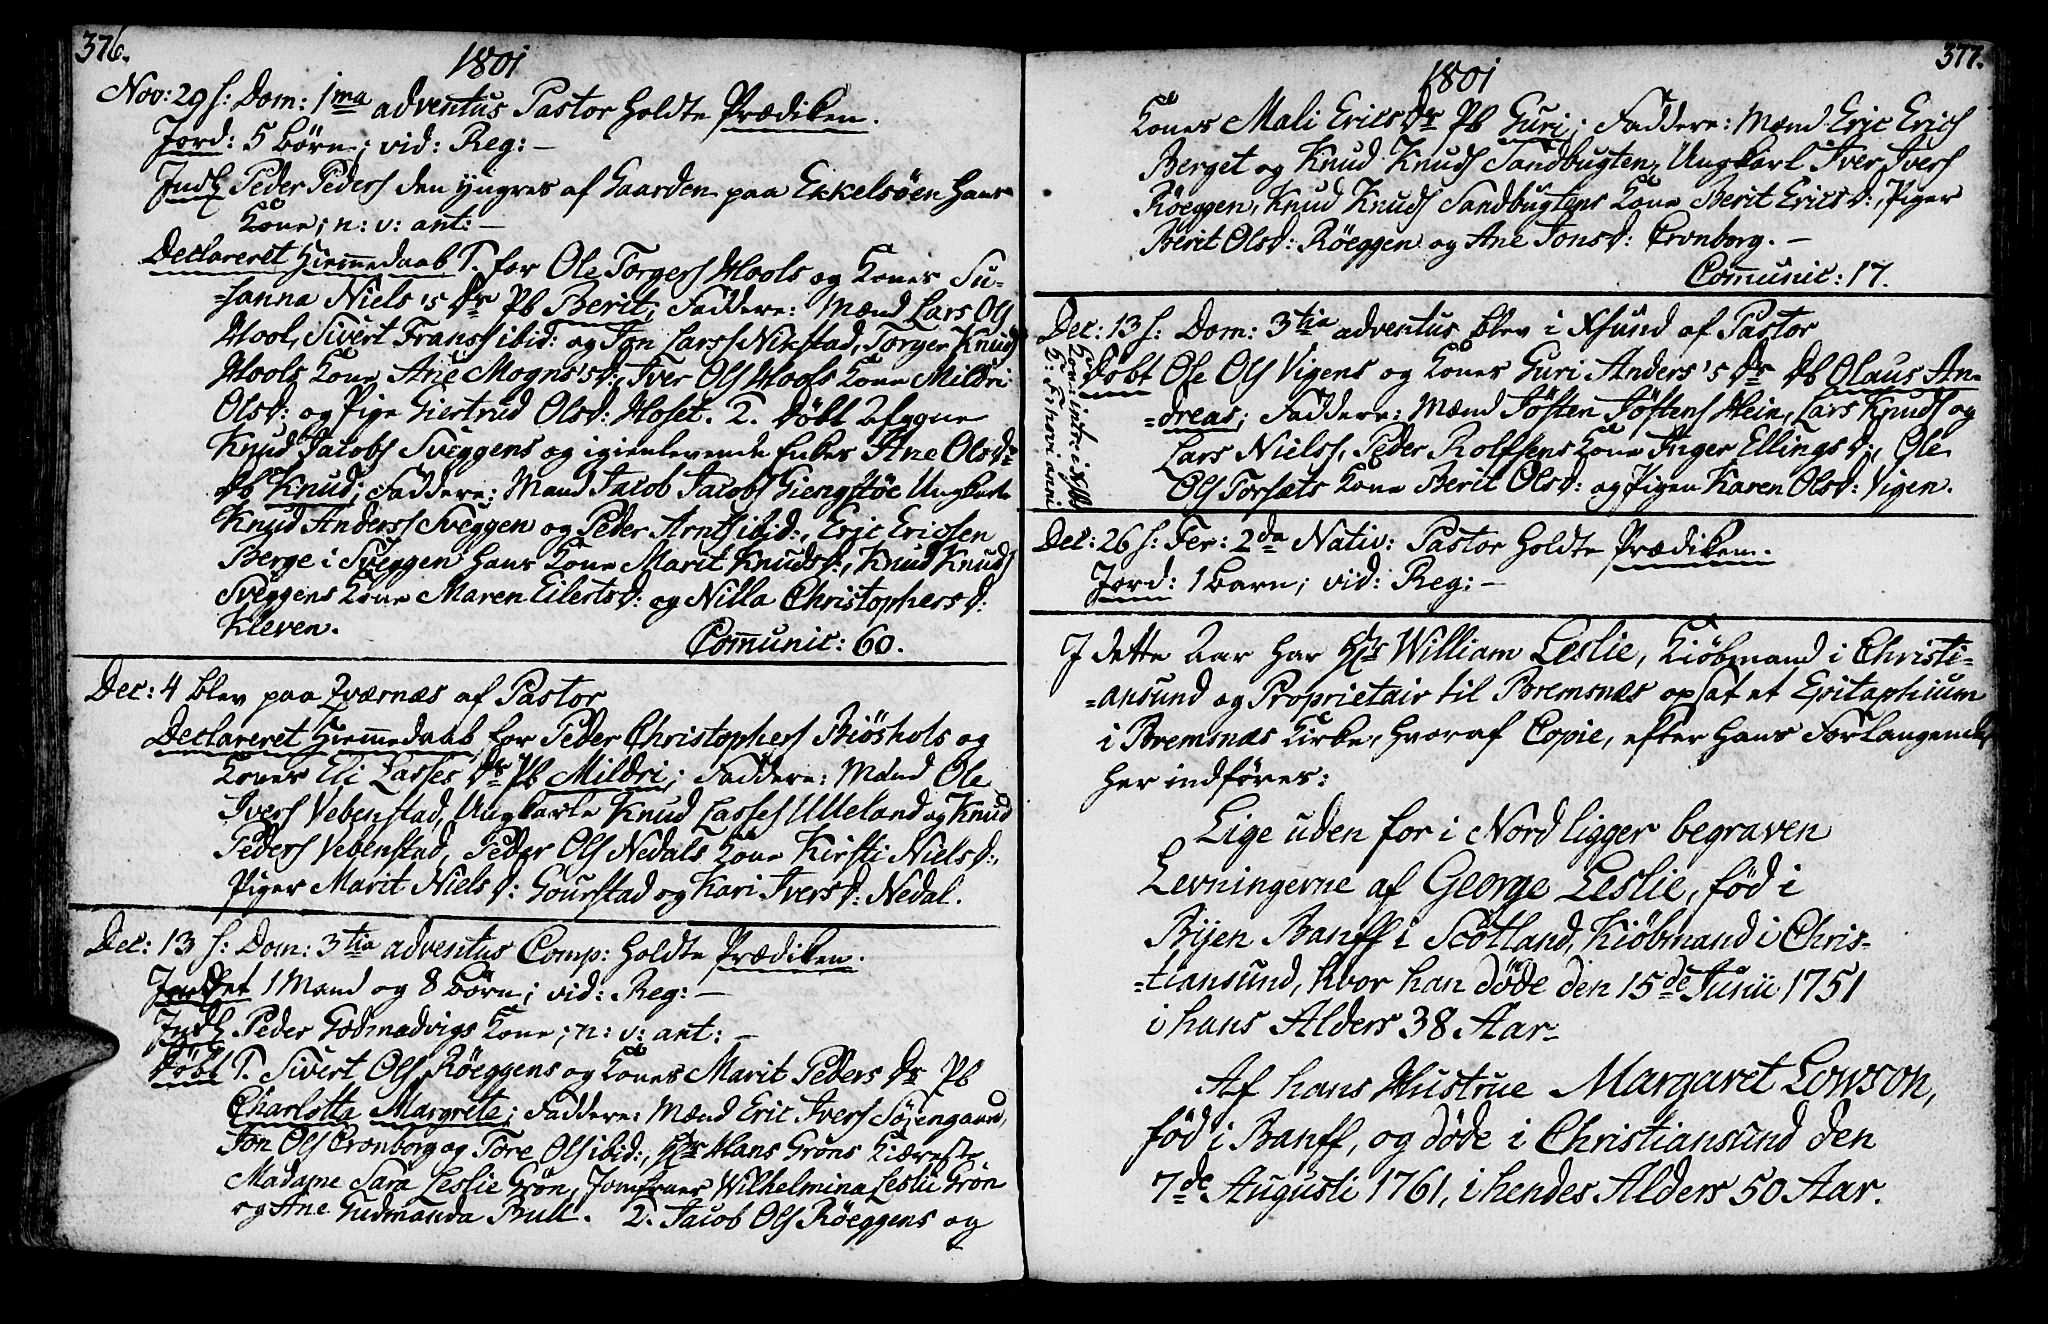 376.
1801
Nov: 29 s: Dom: 1ma adventus Pastor holdte Prædiken.
Jord: 5 Børn; vid: Reg: —
Indl Peder Peders den yngres af Gaarden paa Ekkelsöen hans
Kone; n: v: ant: —
Declareret Hiemmedaab 1. for Ole Torgers Mools og Kones Su-
=sanna Niels's Dr Pb Berit; Faddere: Mænd Lars Ols
Mool, Sivert Franss ibid: og Jon Larss Nikstad, Torger Knuds
Mools Kone Ane Mogns's D:, Iver Ols Mools Kone Mildri
Olsd: og Pige Giertrud Olsd: Moset. 2. Døbt Afggne
Knud Jacobs Sveggens og igienlevende Enkes Ane Olsdr
Db Knud; Faddere: Mand Jacob Jacobs Giengstøe Ungkarle
Knud Anderss Sveggen og Peder Arnts ibid:, Eric Ericsen
Berge i Sveggen hans Kone Marit Knudsd:, Knud Knuds
Sveggens Kone Maren Eilertsd: og Nilla Christophersd:
Kleven.
Comunic: 60.
Dec: 4 blev paa Qværnæs af Pastor
Declareret Hiemmedaab for Peder Christophers Biöshols og
Kones Eli Lasses Dr Pb Mildri; Faddere: Mænd Ole
Ivers Vebenstad, Ungkarle Knud Lasses Ulleland og Knud
Peders Vebenstad, Peder Ols Nedals Kone Kirsti Nielsd:,
Piger Marit Nielsd: Gourstad og Kari Iversd: Nedal.
Dec: 13 s: Dom: 3tia adventus Comp: holdte Prædiken.
Jordet 1 Mand og 8 Børn; vid: Reg: —
Indl Peder Godmadvigs Kone; n: v: ant: —
Döbt 1. Sivert Ols Röeggens og Kones Marit Peders Dr Pb
Charlotta Margrete; Faddere: Mænd Eric Ivers Söjengaard,
Jon Ols Cronborg og Tore Ols ibid:, Hr Hans Gröns Kiæreste
Madame Sara Leslie Grön, Jomfruer Wilhelmina Leslie Grön
og Ane Gudmanda Bull. 2. Jacob Ols Röeggens og
377.
1801
Kones Mali Erics Dr Pb Guri; Faddere: Mænd Eric Erics
Berget og Knud Knuds Sandbugten, Ungkarl Iver Ivers
Röeggen, Knud Knuds Sandbugtens Kone Berit Ericsd:, Piger
Berit Olsd: Röeggen og Ane Jonsd: Cronborg. —
Comunic: 17.
Dec: 13 s: Dom: 3tia adventus blev i Xsund af Pastor
Döbt Ole Ols Vigens og Kones Guri Anders's Dr Db Olaus An-
=dreas; Faddere: Mænd Jösten Jöstens Hein, Lars Knuds og
Lars Nielss, Peder Rolfsens Kone Inger Ellingsd:, Ole
Ols Torsæts Kone Berit Olsd: og Pigen Karen Olsd: Vigen.
Dec: 26 s: Fer: 2da Nativ: Pastor holdte Prædiken.
Jord: 1 Barn; vid: Reg: —
I dette Aar har Hr William Leslie, Kiöbmand i Christi-
=ansund og Proprietair til Bremsnæs opsat et Epitaphium
i Bremsnæs Kirke, hvoraf Copie, efter hans Forlangende,
her indföres:
Lige uden for i Nord ligger begraven
Levningerne af George Leslie, föd i
Bijen Banff i Scotland, Kiöbmand i Chris-
=tiansund, hvor han döde den 15de Junii 1751
i hans Alders 38 Aar.
Af hans Hustrue Margaret Lowson,
föd i Banff, og döde i Christiansund den
7de Augusti 1761, i hendes Alders 50 Aar.